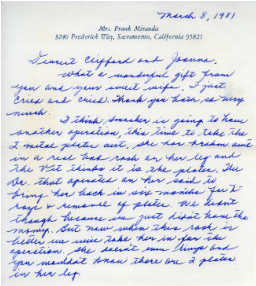 March 8, 1981
Mrs. Frank Miranda
3240 Frederick Way, Sacramento, California 95821
Dearest Clifford and Joanna.
What a wonderful gift from
you and your sweet wife. I just
cried and cried. Thank you both so very
much.
I think is going to have
another operation, this time to take the
2 metal plates out, she has broken out
in a real bad rash on her leg and
the Vet thinks it is the plates. The
Dr. that operated on her said to
bring her back in six months for X-
rays & removal of plates. We didn't
though because we just didn't have the
money. But now when this rash is
better we will take her in for the
operation. She doesn't even limp and
you wouldn't know there are 2 plates
in her leg.